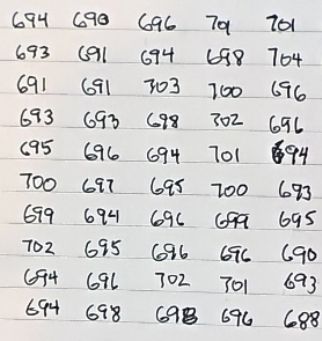 694 690 696 701 701
693 691 694 698 704
691 691 703 700 696
693 693 698 702 696
695 696 694 701 694
700 697 695 700 693
699 694 696 699 695
702 695 696 696 690
694 696 702 701 693
694 698 698 696 688